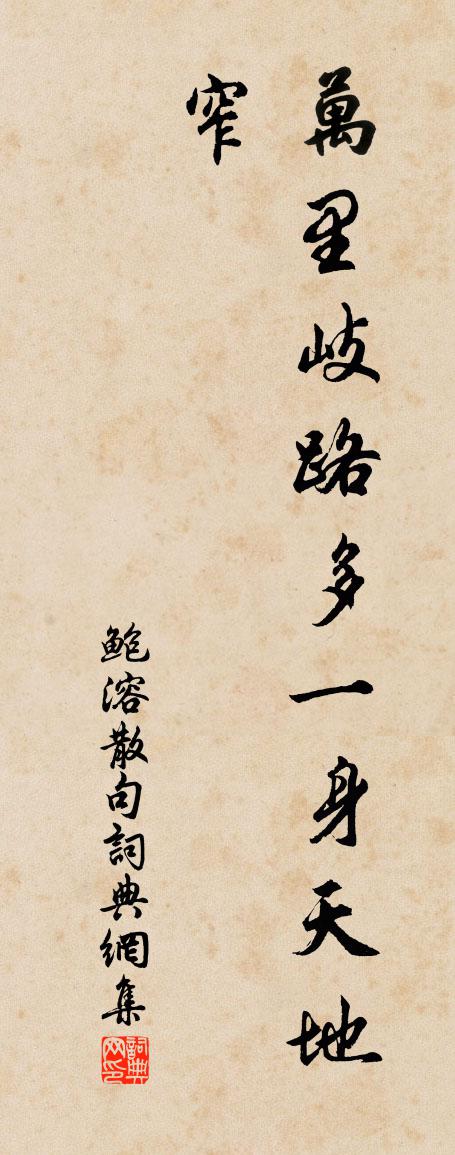 萬里歧路多一身天地
窄
鮑溶散句詞典網集
詞典
网印